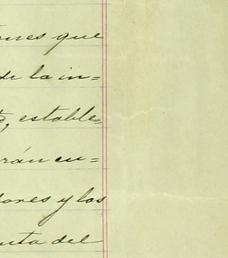 ones que
de la in=
o, estable=
rán en=
dores y los
nta del